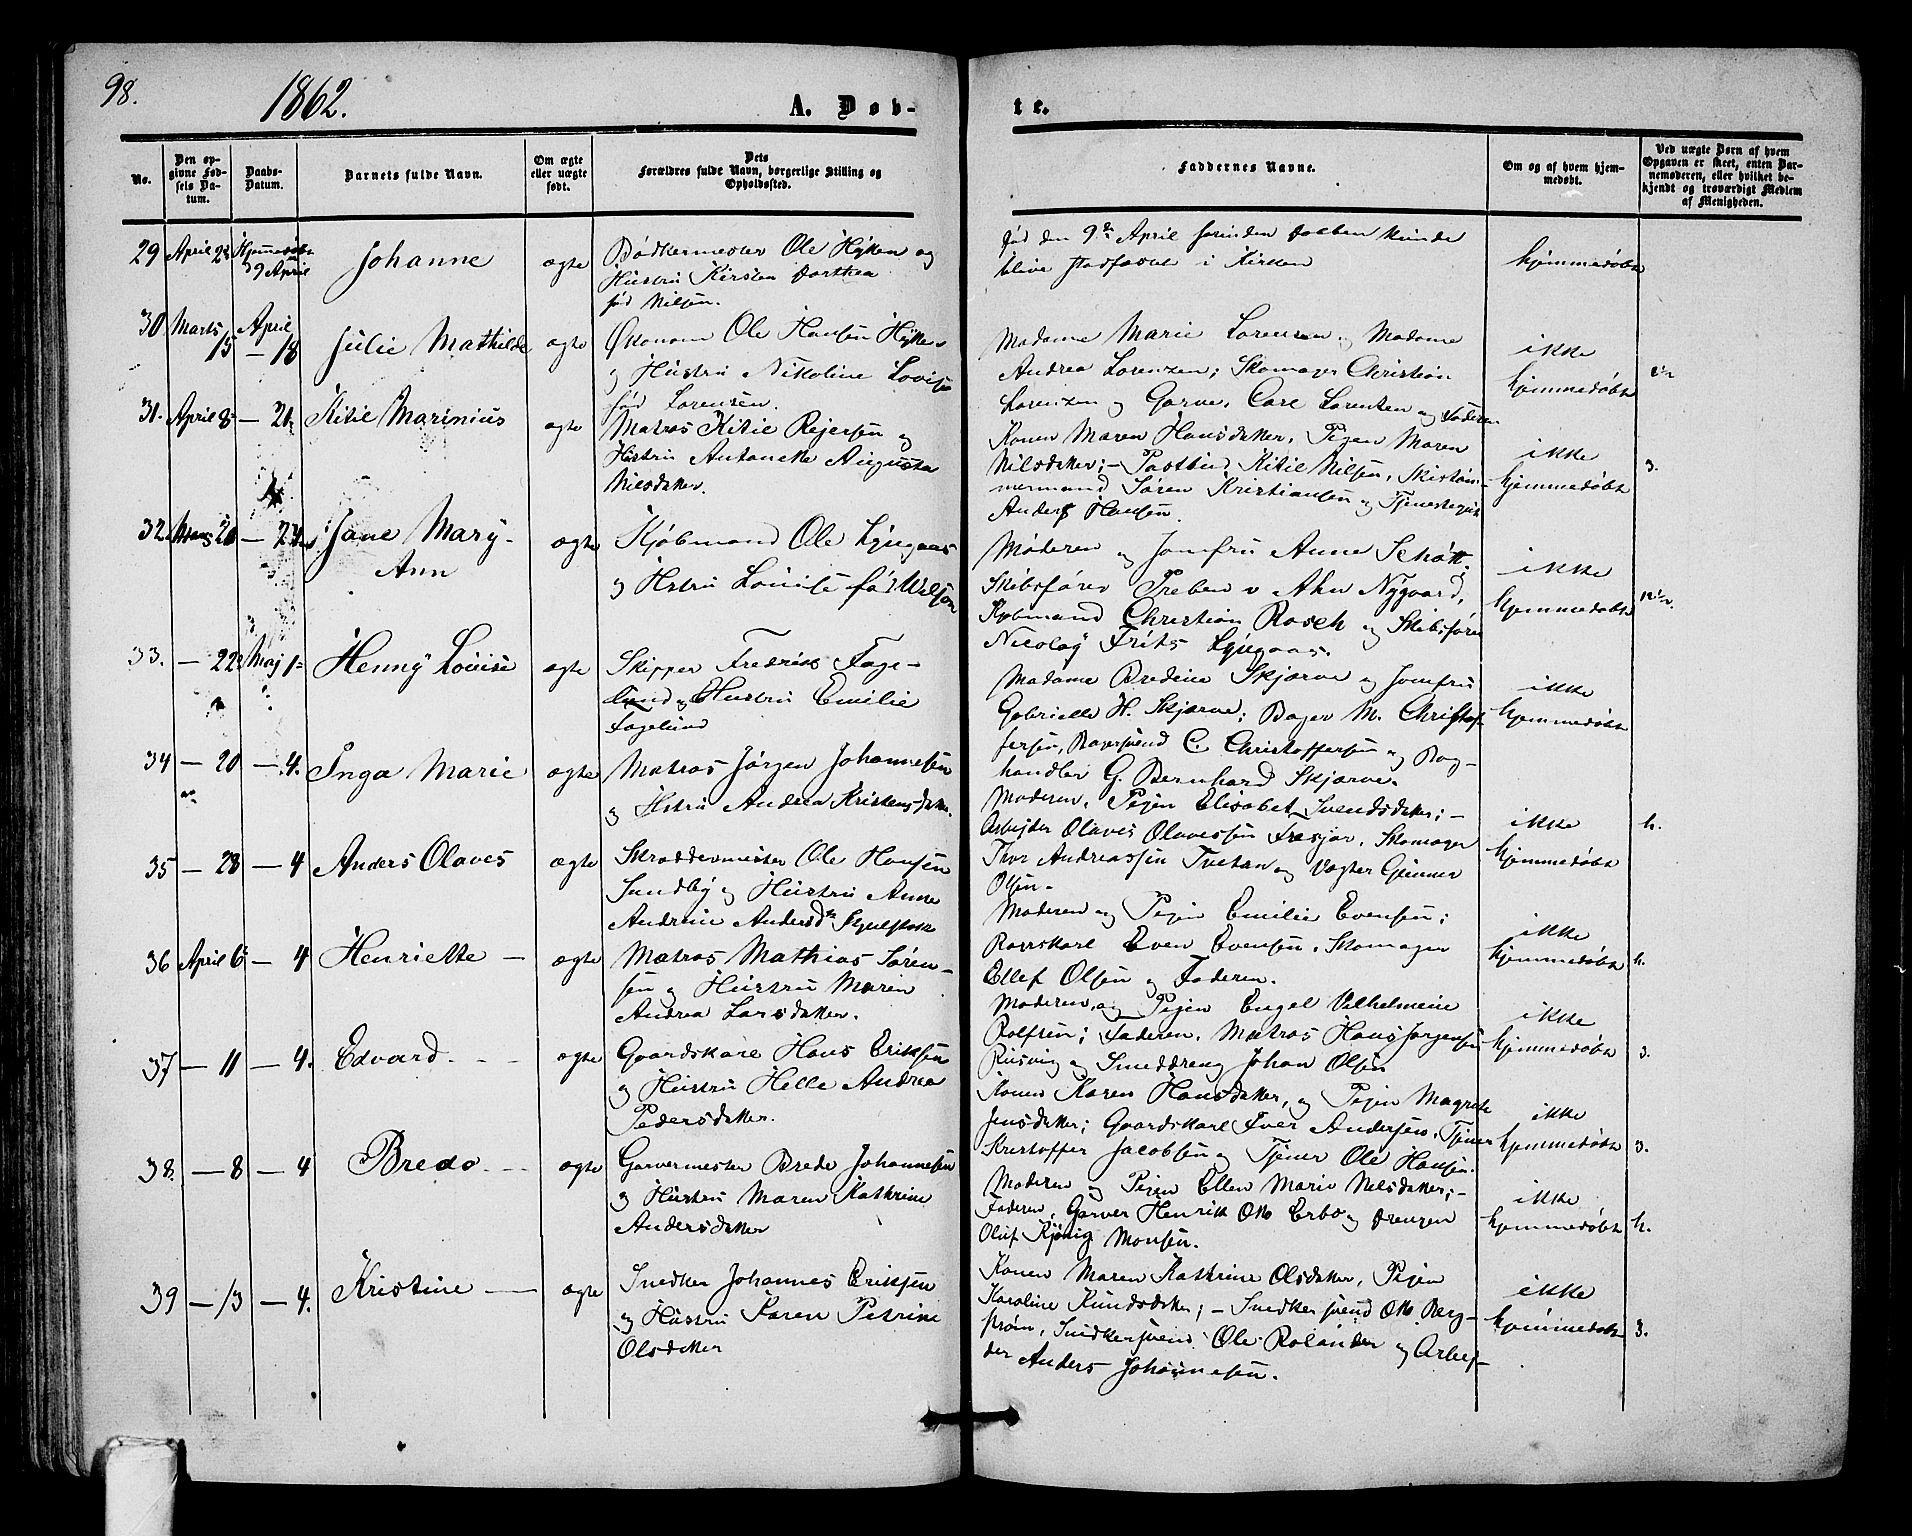 98.
1862.
A. Døb-
te.
No.
Den op-
givne Fød-
sels Da-
tum.
Daabs-
Datum.
Barnets fulde Navn.
Om ægte
eller uægte
født.
Dets
Forældres fulde Navn, borgerlige Stilling og
Opholdssted.
Faddernes Navne.
Om og af hvem hjem-
medøbt.
Ved uægte Børn af hvem
Opgaven er skeet, enten Bar-
nemoderen, eller hvilket be-
kjendt og troværdigt Medlem
af Menigheden.
29 April 2 Hjemmedøbt
9 April
Johanne
ægte
Bødkermester Ole Hÿken og
Hustru Kirsten Dorthea
fød Nilsen.
død den 9de April forinden Daaben kunde
blive stadfæstet i Kirken
hjemmedøbt
30 Marts 15 April 18
Julie Mathilde
ægte
Økonom Ole Hansen Hÿken
og Hustru Nikoline Lovise
fød Lorensen.
Madame Marie Lorensen, Madame
Andrea Lorenzen; Skomager Christian
Lorenzen og Garver Carl Lorentzen og Faderen
ikke
hjemmedøbt
31. April 8 — 21
Kitil Marinius
ægte
Matros Kitil Rejersen og
Hstru Antonette Augusta
Nilsdatter.
Konen Maren Hansdatter, Pigen Maren
Nilsdatter; — Postbud Kitil Nilsen, Skibstøm-
mermand Søren Kristiansen og Tjenestegut
Anders Hansen.
ikke
hjemmedøbt
3.
32. 20 — 27
Jane Mary-
Ann
ægte
Kjøbmand Ole Lÿngaas
og Hstru Louise fød Wilson
Moderen og Jomfru Anne Schøtt,
Skibsfører Preben v Ahn Nygaard,
Kjøbmand Christian Rosch og Skibsfører
Nicolaÿ Frits Lÿngaas.
ikke
hjemmedøbt
33. — 22 Maj 1
Hennÿ Lovise
ægte
Skipper Fredrik Fage-
lund og Hustru Emilie
Fagelund
Madame Bredine Skjærve og Jomfru
Gabrielle H. Skjærve; Bager M. Christof-
fersen, Bagersvend C. Christoffersen og Bog-
handler G. Bernhard Skjærve.
ikke
hjemmedøbt
34 — 20 — 4.
Inga Marie
ægte
Matros Jørgen Johannesen
og Hstru Andrea Kristensdatter.
Moderen, Pigen Elisabet Svendsdatter; —
Arbejder Olaves Olavessen Frosjør, Skomager
Thor Andreassen Tvetan og Vægter Gunner
Olsen.
ikke
hjemmedøbt
h.
35 — 28 — 4
Anders Olaves
ægte
Skræddermester Ole Hansen
Sundbÿ og Hustru Anne
Andrine Andersd
Moderen og Pigen Emilie Evensen;
Roerskarl Even Evensen, Skomager
Ellef Olsen og Faderen.
ikke
hjemmedøbt
h.
36 April 6 — 4
Henriette —
ægte
Matros Mathias Søren-
sen og Hustru Maren
Andrea Larsdatter.
Moderen, og Pigen Engel Vilhelmine
Rolfsen; Faderen, Matros Hans Jørgensen
Risvig og Smeddreng Johan Olsen
ikke
hjemmedøbt
3.
37 — 11 — 4.
Edvard. —
ægte
Gaardskarl Hans Eriksen
og Hustru Helle Andrea
Pedersdatter.
Konen Karen Hansdatter, og Pigen Magrete
Jensdatter; Gaardskarl Iver Andersen, Tjener
Kristoffer Jacobsen og Tjener Ole Hansen.
ikke
hjemmedøbt
3.
38. — 8 — 4
Brede. —
ægte
Garvermester Brede Johannesen
og Hustru Maren Kathrine
Andersdatter
Moderen og Pigen Ellen Marie Nilsdatter; —
Faderen, Garver Henrik Otto Erbo og Drengen
Oluf Kjønig Monsen.
ikke
hjemmedøbt
h.
39 — 13 — 4.
Kristine —
ægte
Snedker Johannes Eriksen
og Hustru Karen Petrine
Olsdatter
Konen Maren Kathrine Olsdatter, Pigen
Karoline Knudsdatter; — Snedkersvend Otto Berg-
strøm, Snedkersvend Ole Rolander og Arbej-
der Anders Johannesen.
ikke
hjemmedøbt
3.